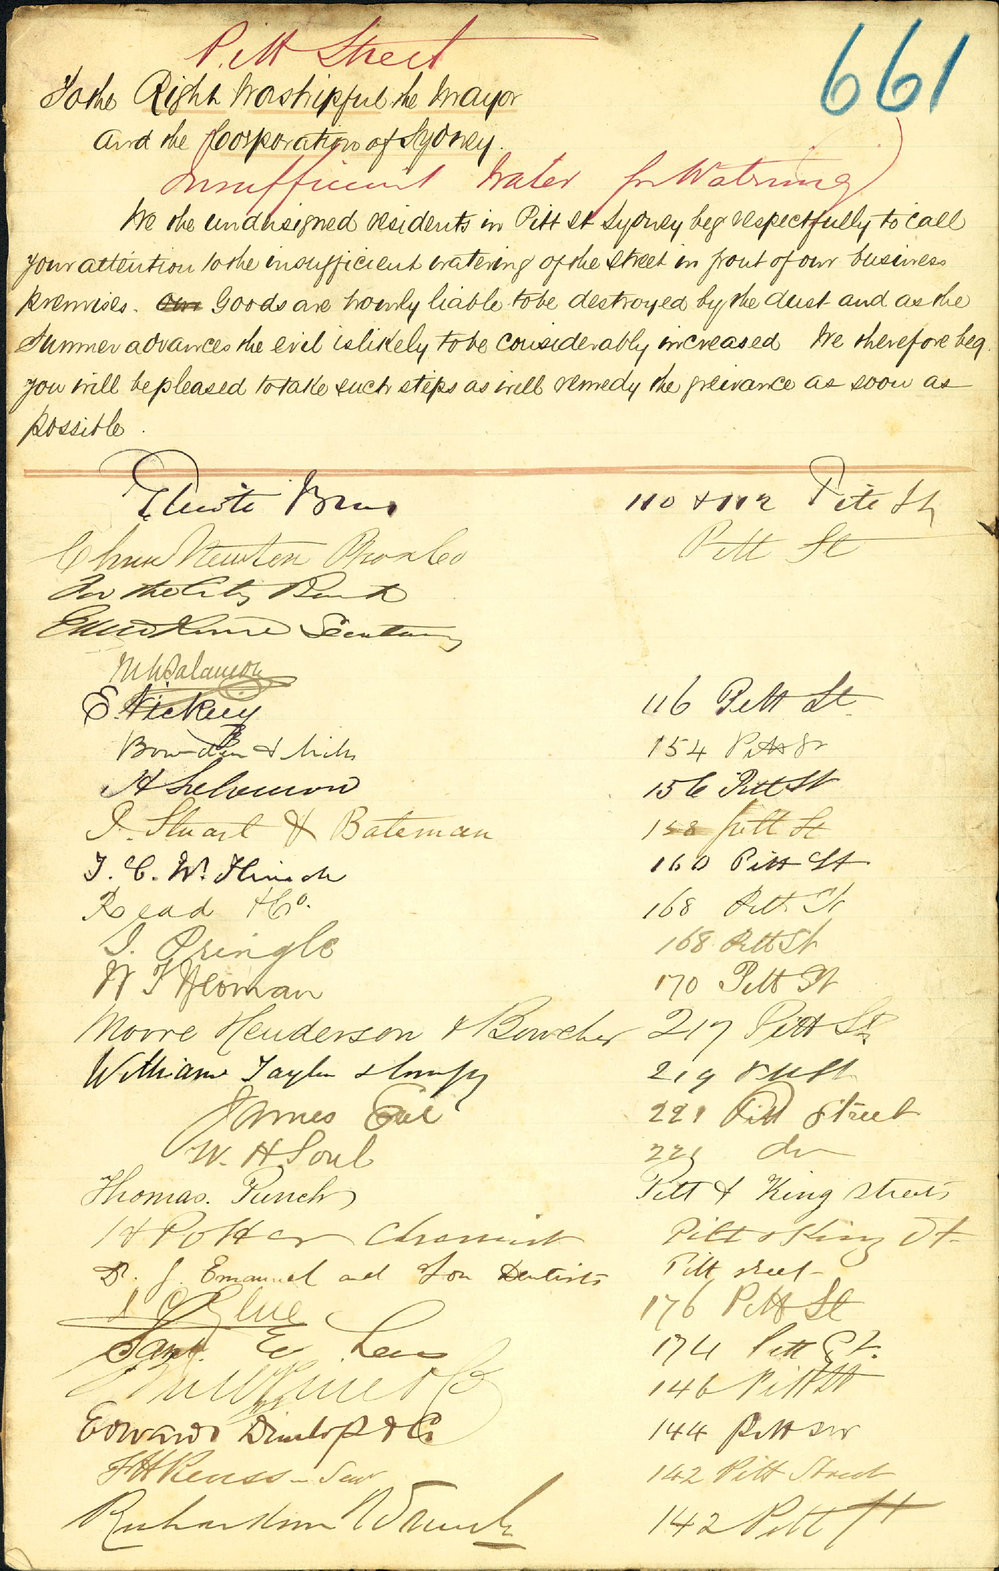 Pitt Street
661
To the Right Worshipful the Mayor
and the Corporation of Sydney.
Insufficient Water for Watering
We the undersigned residents in Pitt St Sydney beg respectfully to call
your attention to the insufficient watering of the street in front of our business
premises. Our Goods are hourly liable to be destroyed by the dust and as the
Summer advances the evil is likely to be considerably increased We therefore beg
you will be pleased to take such steps as will remedy the greivance as soon as
possible.
Bros 110 & 112 Pitt St
Newton Bros & Co Pitt St
For the City Bank
Secretary
E. Vickery 116 Pitt St.
Bowden & 154 Pitt St
A Solomon 156 Pitt St
J. Stuart & Bateman 158 Pitt St
J. C. W. 160 Pitt St
Read & Co. 168 Pitt St
J. Pringle 168 Pitt St
W F Yeoman 170 Pitt St
Moore Henderson & Bowcher 217 Pitt St
William Taylor & Compy 219 Pitt St
James 221 Pitt Street
W. H Soul 221 do
Thomas Punch Pitt & King streets
Potter Chemist Pitt & King St
J. Emanuel and Son Dentists Pitt street
176 Pitt St
Saml. E Lees 174 Pitt St.
& Co 146 Pitt St
Edward Dunlop & Co 144 Pitt St
F H Reuss Senr 142 Pitt Street
Richardson & Wrench 142 Pitt St